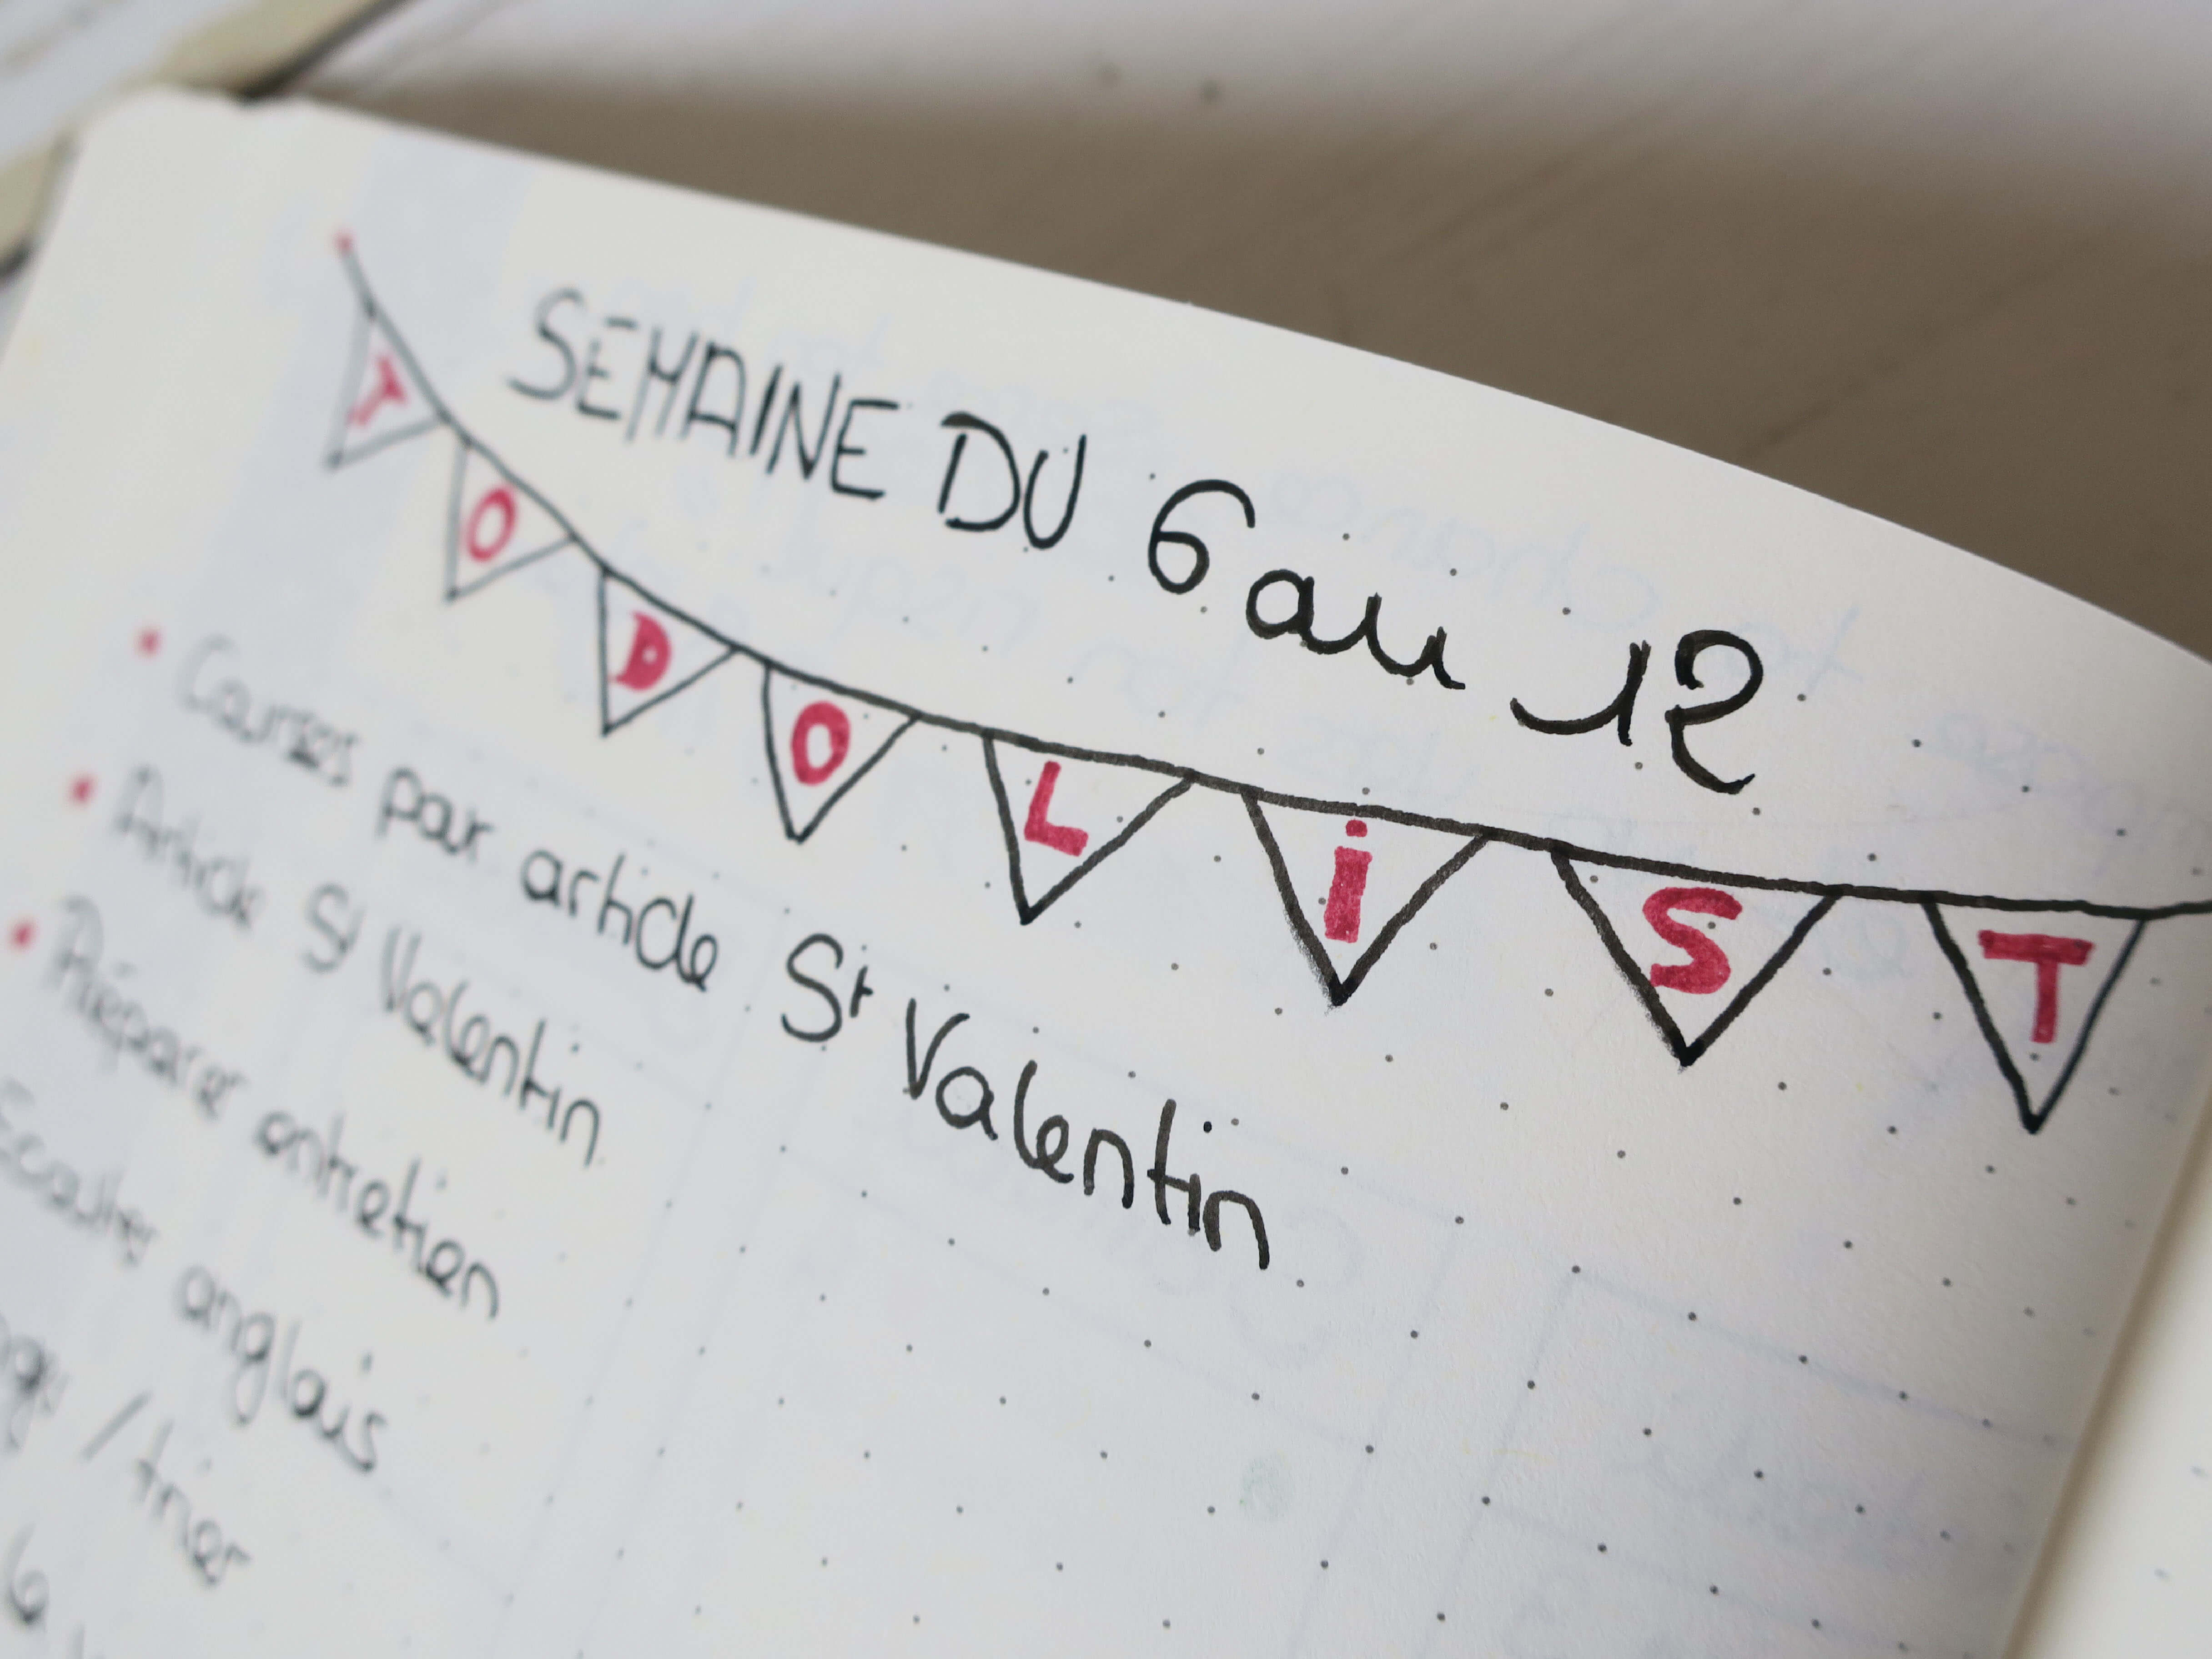 SEMAINE DU 6 au 12
TO DO LiST
Courses pour article St Valentin
Article St Valentin
Préparer entretien
Ecouter anglais
/ trier